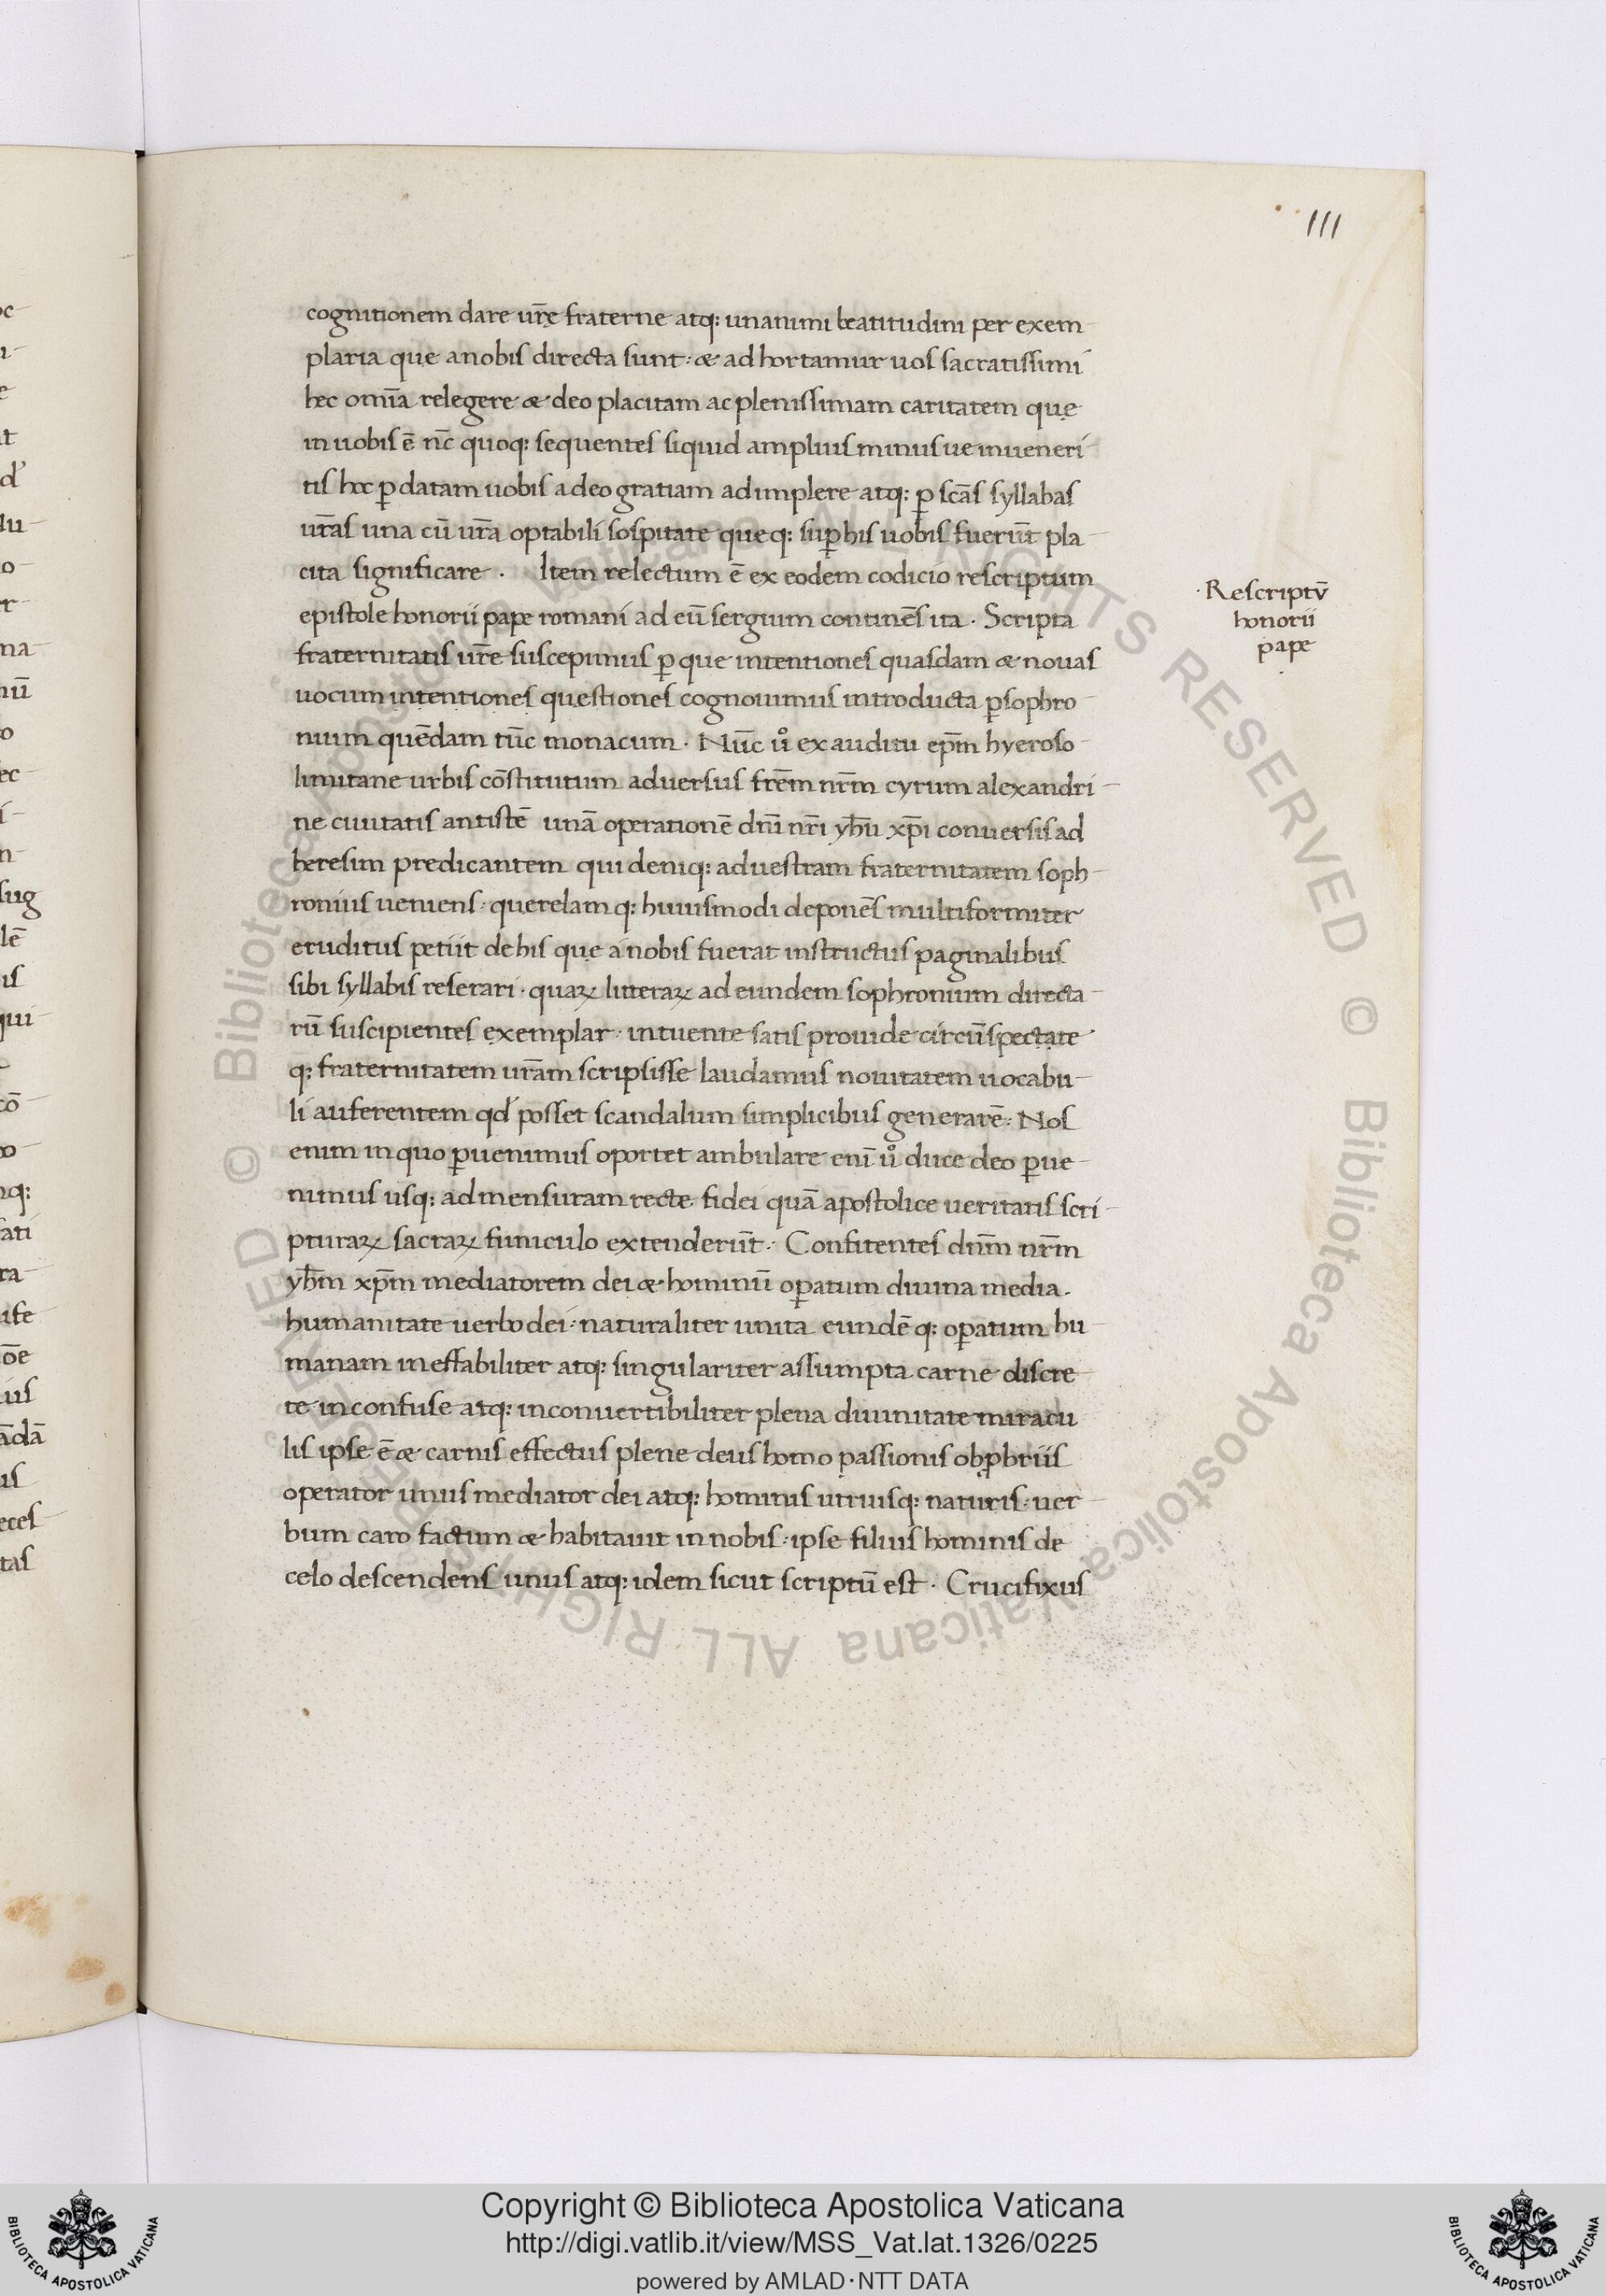 111
cognitionem dare ur̄ę fraterne atq: unanimi beatitudini per exem-
plaria quę anobis directa sunt· & ad hortamur uos sacratissimi
hęc om̄ia relegere & deo placitam ac plenissimam caritatem quę
in uobis ē nc̄ quoq: sequentes siquid amplius minus ue inueneri-
tis hoc p̱ datam uobis adeo gratiam adimplere atq: p̱ sc̄as syllabas
ur̄as una cū ur̄a optabili sospitate quęq: sup̱ his uobis fuerūt pla-
cita significare · Item relectum ē ex eodem codicio rescriptum
epistole honorii papę romani ad eū sergium continēs ita · Scripta
fraternitatis ur̄e suscepimus p̱ quę intentiones quasdam & nouas
uocum intentiones questiones cognouimus introducta p̱ sophro-
nium quēdam tūc monacum · Nūc uº ex auditu ep̄m hyeroso-
limitane urbis cōstitutum aduersus frēm nr̄m cyrum alexandri-
ne ciuitatis antistē unā operationē dn̄i nr̄i yh̄u xp̄i conuersis ad
heresim predicantem qui deniq: ad uestram fraternitatem soph-
ronius ueniens· querelamq: huiusmodi deponēs multiformiter
eruditus petiit de his quę a nobis fuerat instructus paginalibus
sibi syllabis reserari · quaꝝ litteraꝝ ad eundem sophronium directa-
rū suscipientes exemplar · intuente satis prouide circūspectate
q: fraternitatem ur̄am scripsisse laudamus nouitatem uocabu-
li auferentem qd́ posset scandalum simplicibus generarē: Nos
enim in quo p̱uenimus oportet ambulare enī uº duce deo p̱ue-
nimus usq: ad mensuram recte fidei quā apostolice ueritatis scri-
pturaꝝ sacraꝝ funiculo extenderūt· Confitentes dn̄m nr̄m
yh̄m xp̄m mediatorem dei & hominū op̱atum diuina media.
humanitate uerbo dei· naturaliter unita eundē q: op̱atum hu-
manam ineffabiliter atq: singulariter assumpta carne discre-
te inconfuse atq: inconuertibiliter plena diuinitate miracu
lis ipse ē & carnis effectus plene deus homo passionis obp̱briis
operator unus mediator dei atq: hominis utriusq: naturis· uer-
bum caro factum & habitauit in nobis· ipse filius hominis de
celo descendens unus atq: idem sicut scriptū est · Crucifixus
·Rescriptv̄
honorii
pape
Copyright © Biblioteca Apostolica Vaticana
http://digi.vatlib.it/view/MSS_Vat.lat.1326/0225
powered by AMLAD·NTT DATA